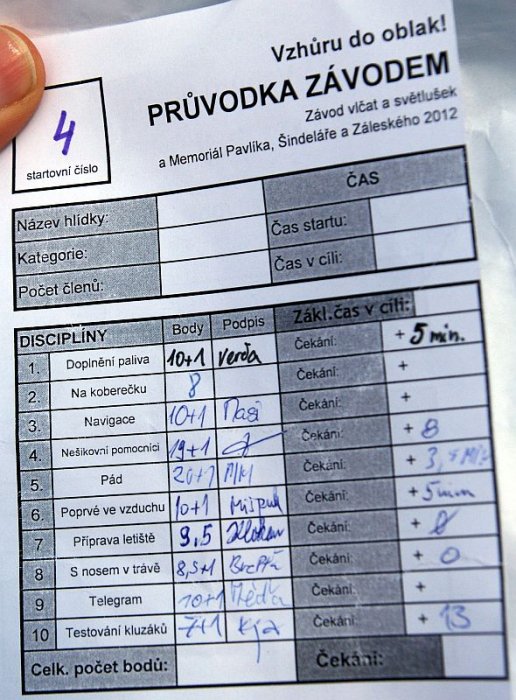 Vzhůru do oblak!
PRŮVODKA ZÁVODEM
Závod vlčat a světlušek
a Memoriál Pavlíka, Šindeláře a Záleského 2012
4
startovní číslo
Název hlídky:
Kategorie:
Počet členů:
ČAS
Čas startu:
Čas v cíli:
DISCIPLÍNY Body Podpis Zákl.čas v cíli:
1. Doplnění paliva 10+1 Verča Čekání: + 5 min.
2. Na koberečku 8 Čekání: +
3. Navigace 10+1 Čekání: +
4. Nešikovní pomocníci 19+1 Čekání: + 8
5. Pád 20+1 Čekání: +
6. Poprvé ve vzduchu 10+1 Čekání: + 5min
7 Příprava letiště 9,5 Klokan Čekání: +
8 S nosem v trávě 8,5+1 Čekání: + 0
9 Telegram 10+1 Čekání: +
10 Testování kluzáků 7+1 Čekání: + 13
Celk. počet bodů: Čekání: